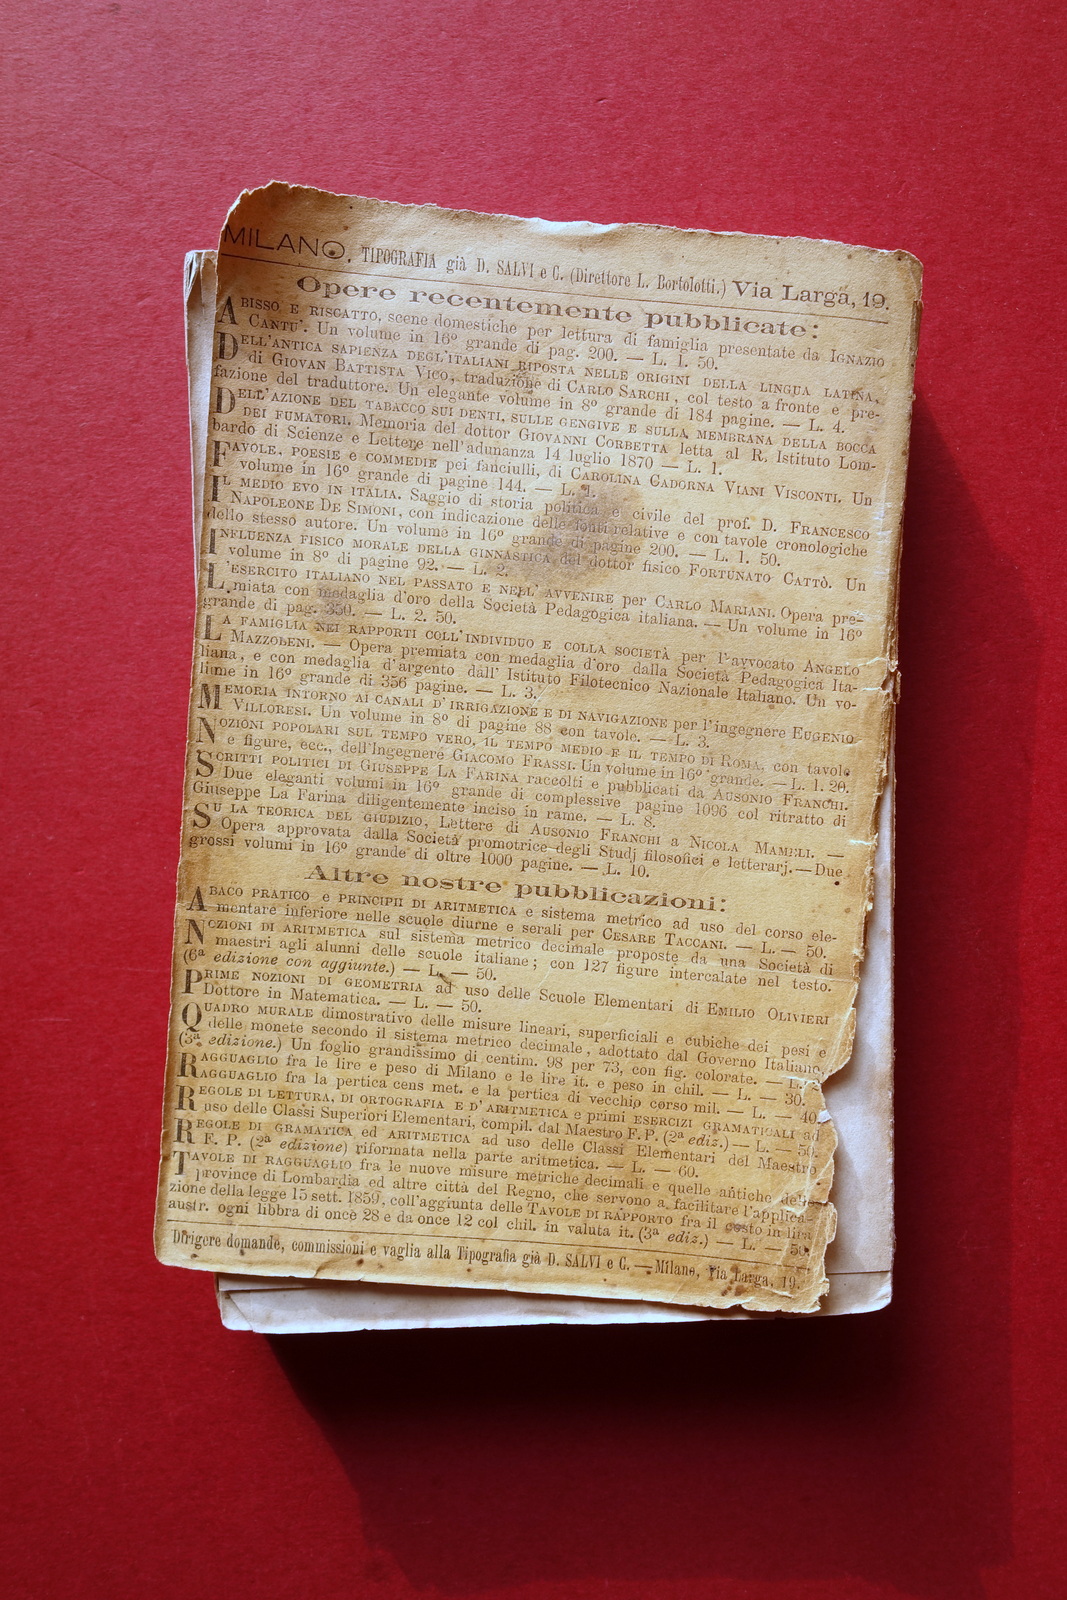 MILANO. TIPOGRAFIA già D. SALVI e C. (Direttore L. Bortolotti.) Via Larga, 19.
Opere recentemente pubblicate:
ABISSO E RISCATTO, scene domestiche per lettura di famiglia presentate da IGNAZIO
CANTU'. Un volume in 16º grande di pag. 200. — L. 1. 50.
DELL'ANTICA SAPIENZA DEGL'ITALIANI RIPOSTA NELLE ORIGINI DELLA LINGUA LATINA,
di GIOVAN BATTISTA VICO, traduzione di CARLO SARCHI, col testo a fronte e pre-
fazione del traduttore. Un elegante volume in 8º grande di 184 pagine. — L. 4.
DELL'AZIONE DEL TABACCO SUI DENTI, SULLE GENGIVE E SULLA MEMBRANA DELLA BOCCA
DEI FUMATORI. Memoria del dottor GIOVANNI CORBETTA letta al R. Istituto Lom-
bardo di Scienze e Lettere nell'adunanza 14 luglio 1870 — L. 1.
FAVOLE, POESIE E COMMEDIE pei fanciulli, di CAROLINA CADORNA VIANI VISCONTI. Un
volume in 16º grande di pagine 144. — L. 1.
IL MEDIO EVO IN ITALIA. Saggio di storia politica e civile del prof. D. FRANCESCO
NAPOLEONE DE SIMONI, con indicazione delle fonti relative e con tavole cronologiche
dello stesso autore. Un volume in 16º grande di pagine 200. — L. 1. 50.
INFLUENZA FISICO MORALE DELLA GINNASTICA del dottor fisico FORTUNATO CATTÒ. Un
volume in 8º di pagine 92. — L. 2.
L'ESERCITO ITALIANO NEL PASSATO E NELL'AVVENIRE per CARLO MARIANI. Opera pre-
miata con medaglia d'oro della Società Pedagogica italiana. — Un volume in 16º
grande di pag. 350. — L. 2. 50.
LA FAMIGLIA NEI RAPPORTI COLL'INDIVIDUO E COLLA SOCIETÀ per l'avvocato ANGELO
MAZZOLENI. — Opera premiata con medaglia d'oro dalla Società Pedagogica Ita-
liana, e con medaglia d'argento dall'Istituto Filotecnico Nazionale Italiano. Un vo-
lume in 16º grande di 356 pagine. — L. 3.
MEMORIA INTORNO AI CANALI D'IRRIGAZIONE E DI NAVIGAZIONE per l'ingegnere EUGENIO
VILLORESI. Un volume in 8º di pagine 88 con tavole. — L. 3.
NOZIONI POPOLARI SUL TEMPO VERO, IL TEMPO MEDIO E IL TEMPO DI ROMA, con tavole
e figure, ecc., dell'Ingegnere GIACOMO FRASSI. Un volume in 16º grande. — L. 1. 20.
SCRITTI POLITICI DI GIUSEPPE LA FARINA raccolti e pubblicati da AUSONIO FRANCHI.
Due eleganti volumi in 16º grande di complessive pagine 1096 col ritratto di
Giuseppe La Farina diligentemente inciso in rame. — L. 8.
SU LA TEORICA DEL GIUDIZIO, Lettere di AUSONIO FRANCHI a NICOLA MAMELI. —
Opera approvata dalla Società promotrice degli Studj filosofici e letterarj. — Due
grossi volumi in 16º grande di oltre 1000 pagine. — L. 10.
Altre nostre pubblicazioni:
ABACO PRATICO e PRINCIPII DI ARITMETICA e sistema metrico ad uso del corso ele-
mentare inferiore nelle scuole diurne e serali per CESARE TACCANI. — L. — 50.
NOZIONI DI ARITMETICA sul sistema metrico decimale proposte da una Società di
maestri agli alunni delle scuole italiane; con 127 figure intercalate nel testo.
(6ª edizione con aggiunte.) — L. — 50.
PRIME NOZIONI DI GEOMETRIA ad uso delle Scuole Elementari di EMILIO OLIVIERI
Dottore in Matematica. — L. — 50.
QUADRO MURALE dimostrativo delle misure lineari, superficiali e cubiche dei pesi e
delle monete secondo il sistema metrico decimale, adottato dal Governo Italiano,
(3ª edizione.) Un foglio grandissimo di centim. 98 per 73, con fig. colorate. — L.
RAGGUAGLIO fra le lire e peso di Milano e le lire it. e peso in chil. — L. — 30.
RAGGUAGLIO fra la pertica cens met. e la pertica di vecchio corso mil. — L. — 40.
REGOLE DI LETTURA, DI ORTOGRAFIA E D'ARITMETICA e primi ESERCIZI GRAMATICALI ad
uso delle Classi Superiori Elementari, compil. dal Maestro F. P. (2ª ediz.) — L. — 50.
REGOLE DI GRAMATICA ED ARITMETICA ad uso delle Classi Elementari del Maestro
F. P. (2ª edizione) riformata nella parte aritmetica. — L. — 60.
TAVOLE DI RAGGUAGLIO fra le nuove misure metriche decimali e quelle antiche delle
provincie di Lombardia ed altre città del Regno, che servono a facilitare l'applica-
zione della legge 15 sett. 1859, coll'aggiunta delle TAVOLE DI RAPPORTO fra il costo in lira
austr. ogni libbra di once 28 e da once 12 col chil. in valuta it. (3ª ediz.) — L. — 50.
Dirigere domande, commissioni e vaglia alla Tipografia già D. SALVI e C. — Milano, Via Larga, 19.